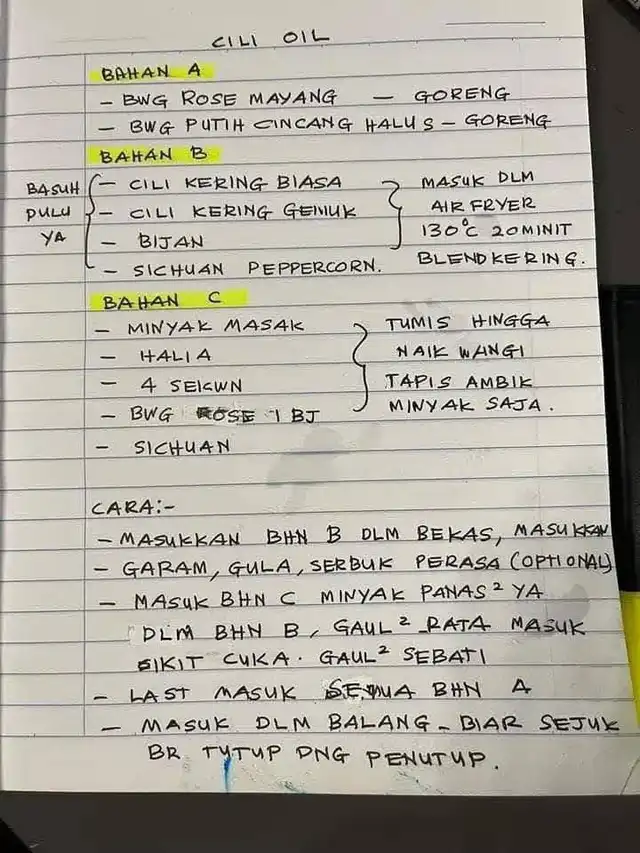 CILI OIL
BAHAN A
- BWG ROSE MAYANG - GORENG
- BWG PUTIH CINCANG HALUS - GORENG
BAHAN B
BASUH PULU YA
- CILI KERING BIASA
- CILI KERING GEMUK
- BIJAN
- SICHUAN PEPPERCORN.
MASUK DLM
AIR FRYER
130°C 20MINIT
BLEND KERING.
BAHAN C
- MINYAK MASAK
- HALIA
- 4 SEKWN
- BWG ROSE 1 BJ
- SICHUAN
TUMIS HINGGA
NAIK WANGI
TAPIS AMBIK
MINYAK SAJA.
CARA:-
- MASUKKAN BHN B DLM BEKAS, MASUKKAN
- GARAM, GULA, SERBUK PERASA (OPTIONAL)
- MASUK BHN C MINYAK PANAS² YA
DLM BHN B, GAUL² RATA MASUK
SIKIT CUKA. GAUL² SEBATI
- LAST MASUK SEMUA BHN A
- MASUK DLM BALANG - BIAR SEJUK
BR TUTUP DNG PENUTUP.